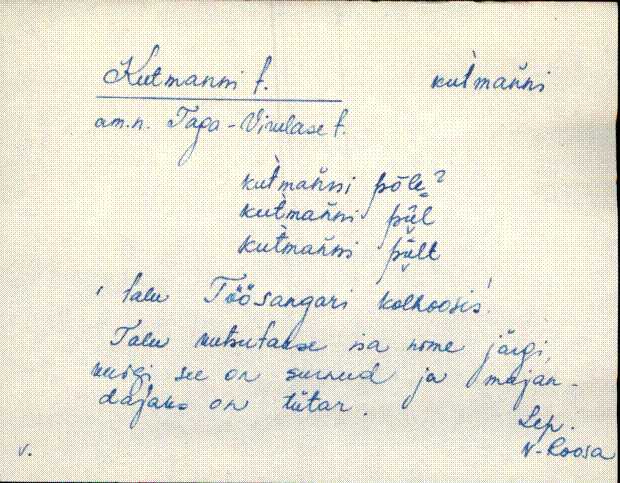 Kutmanni t. kut̀mańni
am. n. Taga-Virulase t.
kut̀mańni põle?
kut̀mańni pǖl
kut̀mańni pǖlt
' talu Töösangari kolhoosis!
Talu kutsutakse isa nime järgi,
kuigi see on surnud ja majan-
dajaks on tütar.
Lep.
N-Roosa
v.